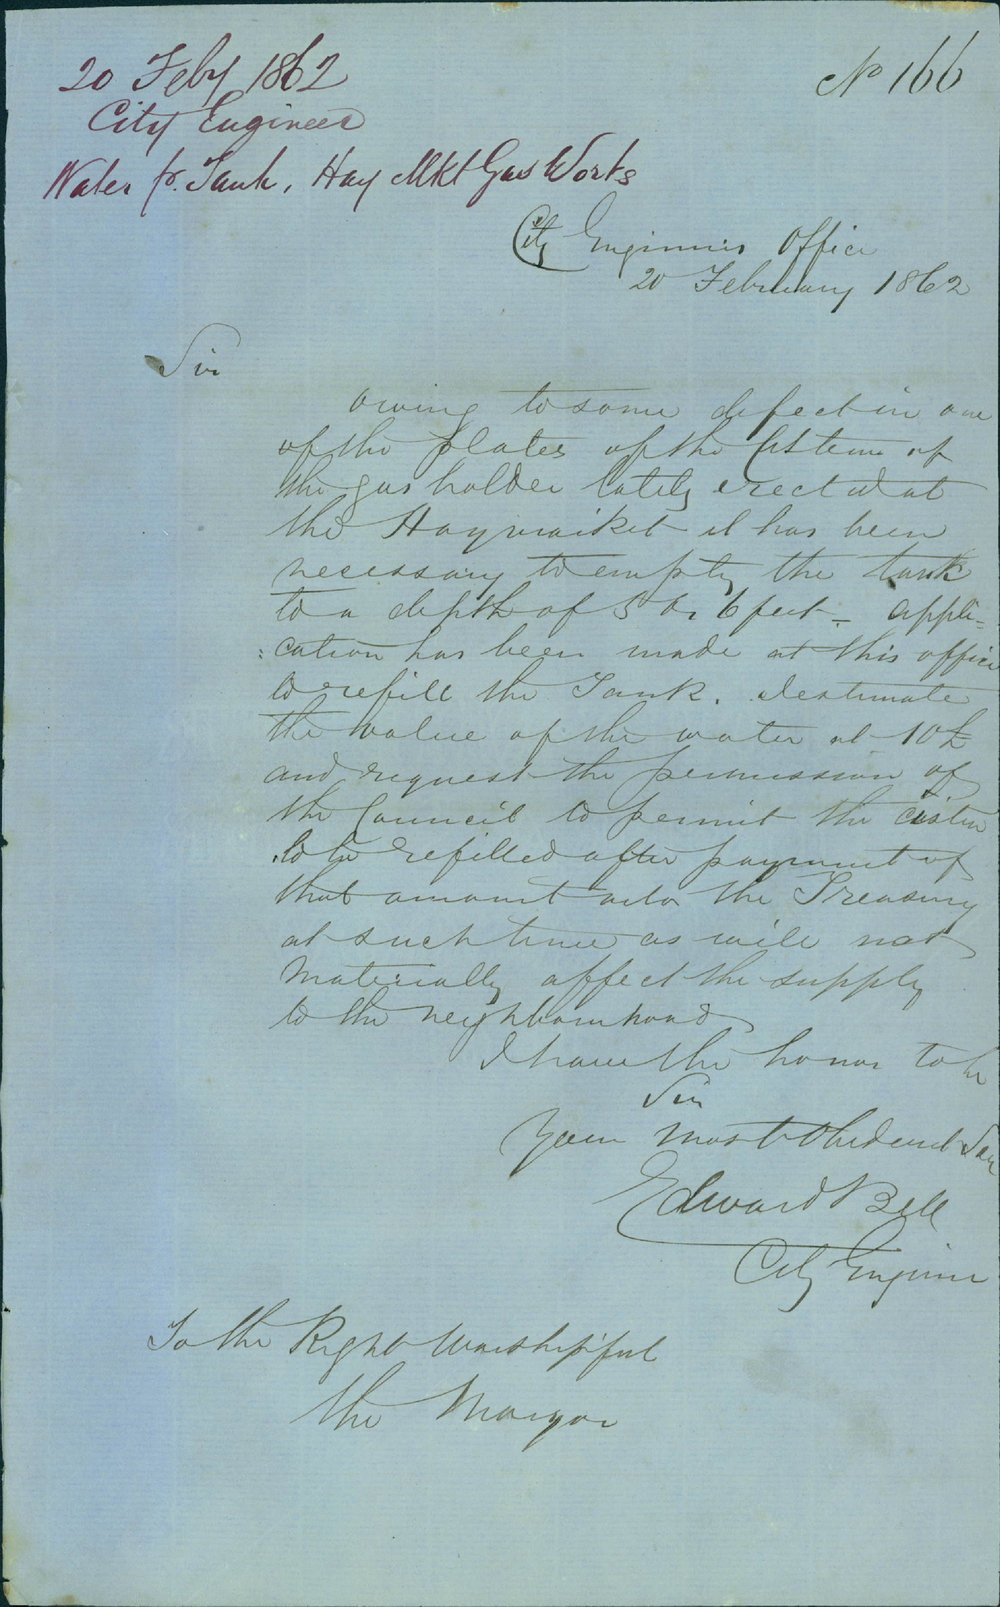 20 Feby 1862
No 166
City Engineer
Water for Tank, Hay Mkt Gas Works
City Engineers Office
20 February 1862
Sir
owing to some defect in one
of the plates of the Cistern of
the gas holder lately erected at
the Haymarket it has been
necessary to empty the tank
to a depth of 5 or 6 feet – appli=
:cation has been made at this office
to refill the Tank. I estimate
the value of the water at 10£
and request the permission of
the Council to permit the cistern
to be refilled after payment of
that amount into the Treasury
at such time as will not
materially affect the supply
to the neighbourhood
I have the honor to be
Sir
Your most Obedient Ser
Edward Bell
City Engineer
To the Right Worshipful
the Mayor